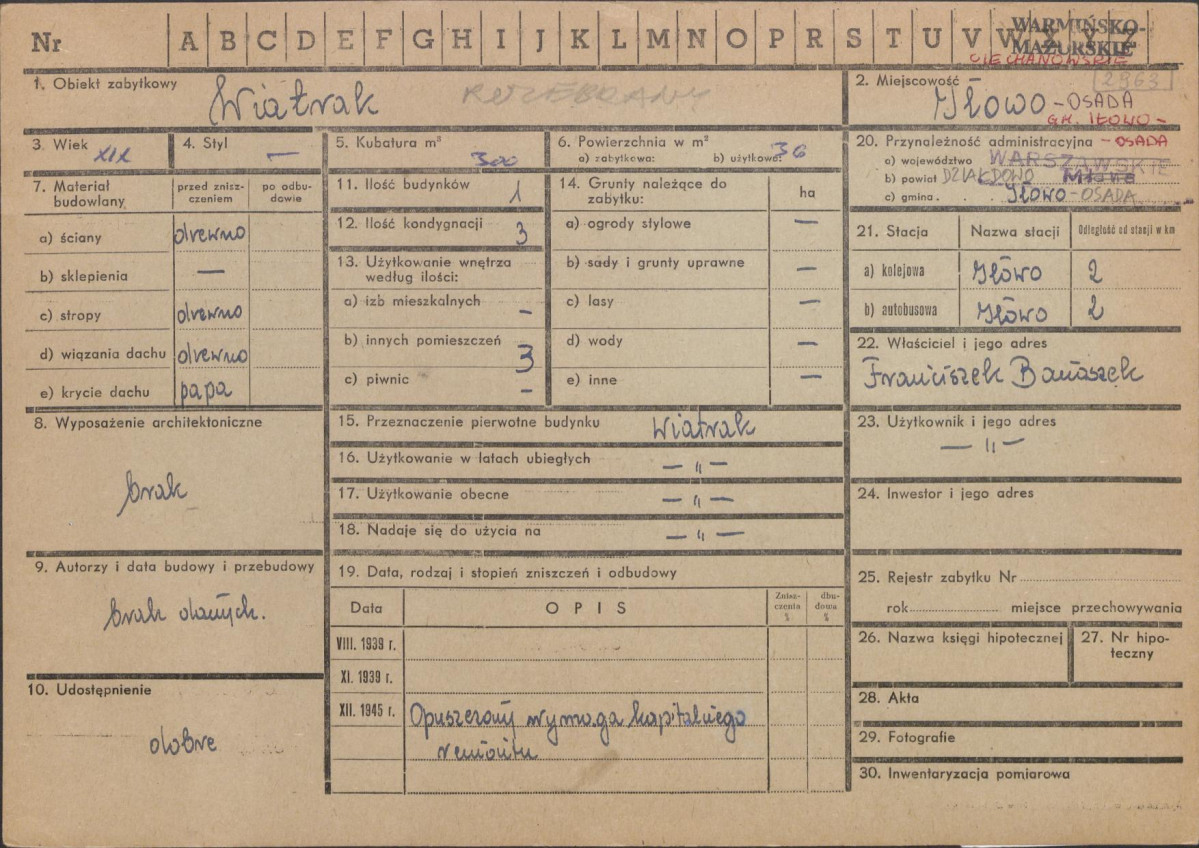 Nr A B C D E F G H I J K L M N O P R S T U V W X Y Z
WARMIŃSKO-
MAZURSKIE
CIECHANOWSKIE
1. Obiekt zabytkowy
Wiatrak ROZEBRANY
2. Miejscowość
2963
Iłowo - OSADA
GM. IŁOWO -
- OSADA
3. Wiek XIX
4. Styl —
5. Kubatura m³ 300
6. Powierzchnia w m²
a) zabytkowa: b) użytkowa: 36
20. Przynależność administracyjna
a) województwo WARSZAWSKIE
b) powiat DZIAŁDOWO Mława
c) gmina Iłowo - OSADA
7. Materiał budowlany
przed zniszczeniem
po odbudowie
a) ściany drewno
b) sklepienia —
c) stropy drewno
d) wiązania dachu drewno
e) krycie dachu papa
11. Ilość budynków 1
12. Ilość kondygnacji 3
13. Użytkowanie wnętrza
według ilości:
a) izb mieszkalnych –
b) innych pomieszczeń 3
c) piwnic –
14. Grunty należące do
zabytku: ha
a) ogrody stylowe —
b) sady i grunty uprawne —
c) lasy —
d) wody —
e) inne —
21. Stacja Nazwa stacji Odległość od stacji w km
a) kolejowa Iłowo 2
b) autobusowa Iłowo 2
22. Właściciel i jego adres
Franciszek Banaszek
8. Wyposażenie architektoniczne
brak
15. Przeznaczenie pierwotne budynku Wiatrak
16. Użytkowanie w latach ubiegłych — „ —
17. Użytkowanie obecne — „ —
18. Nadaje się do użycia na — „ —
23. Użytkownik i jego adres
— „ —
24. Inwestor i jego adres
9. Autorzy i data budowy i przebudowy
brak danych.
10. Udostępnienie
dobre
19. Data, rodzaj i stopień zniszczeń i odbudowy
Data OPIS Zniszczenia % dbudowa %
VIII. 1939 r.
XI. 1939 r.
XII. 1945 r. Opuszczony wymaga kapitalnego
remontu
25. Rejestr zabytku Nr
rok miejsce przechowywania
26. Nazwa księgi hipotecznej
27. Nr hipoteczny
28. Akta
29. Fotografie
30. Inwentaryzacja pomiarowa